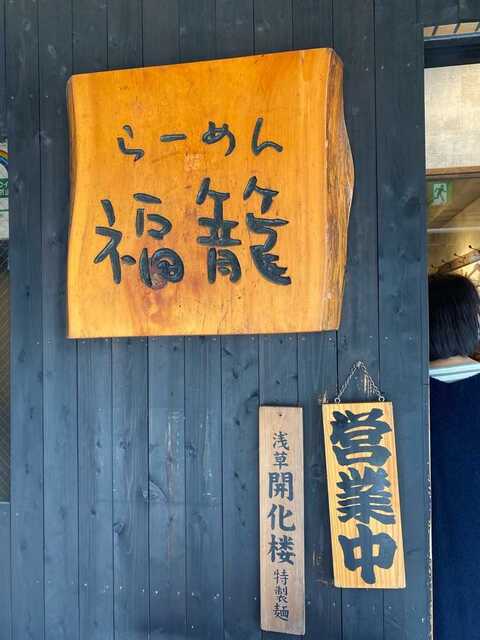 らーめん
福籠
浅草開化楼特製麺
営業中